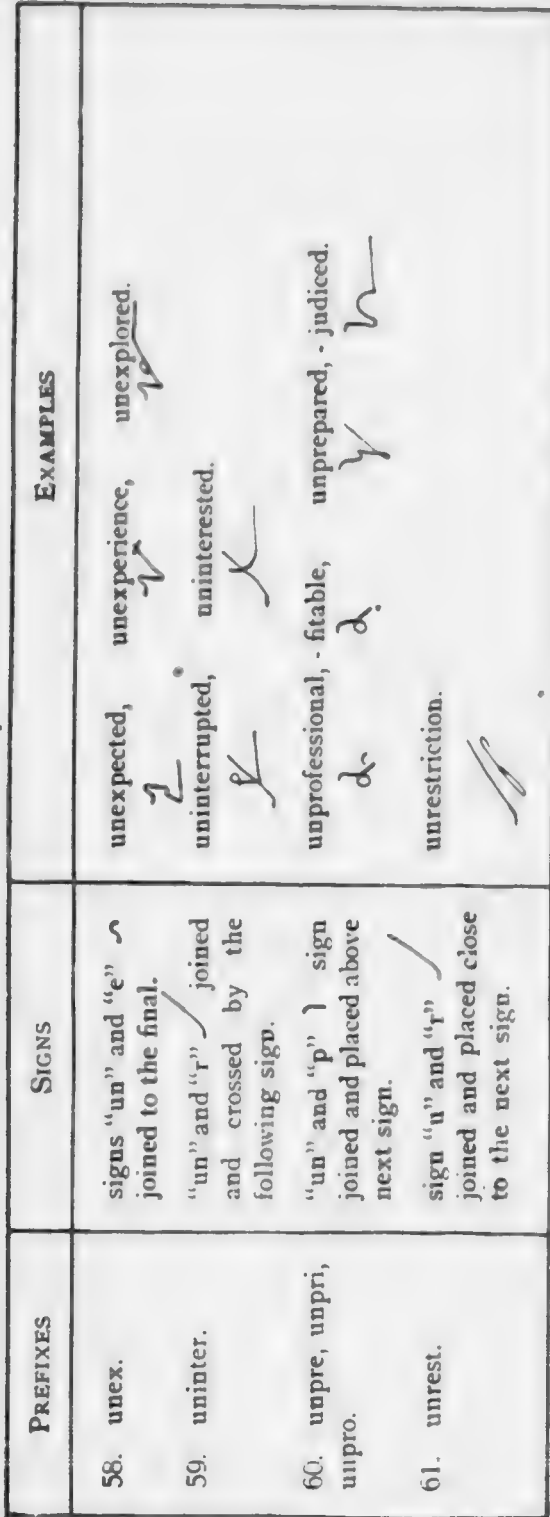 PREFIXES
SIGNS
EXAMPLES
58. unex.
signs “un” and “e”
joined to the final.
unexpected, unexperience, unexplored.
59. uninter.
“un” and “r” joined
and crossed by the
following sign.
uninterrupted, uninterested.
60. unpre, unpri,
unpro.
“un” and “p” sign
joined and placed above
next sign.
unprofessional, - fitable, unprepared, - judiced.
61. unrest.
sign “u” and “r”
joined and placed close
to the next sign.
unrestriction.